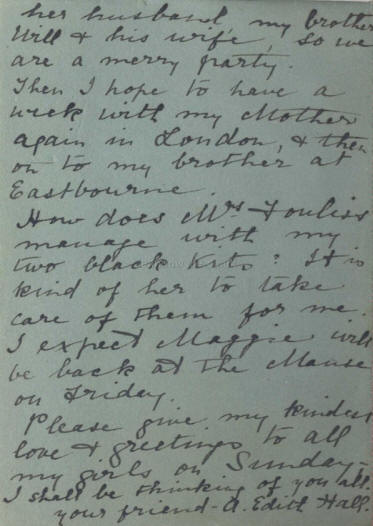 her husband, my brother
Will & his wife, so we
are a merry party.
Then I hope to have a
week with my Mother
again in London, & then
on to my brother at
Eastbourne.
How does Mrs Fouliss
manage with my
two black kits? It is
kind of her to take
care of them for me.
I expect Maggie will
be back at the Manse
on Friday.
Please give my kindest
love & greetings to all
my girls on Sunday -
I shall be thinking of you all.
your friend - A. Edith Hall.